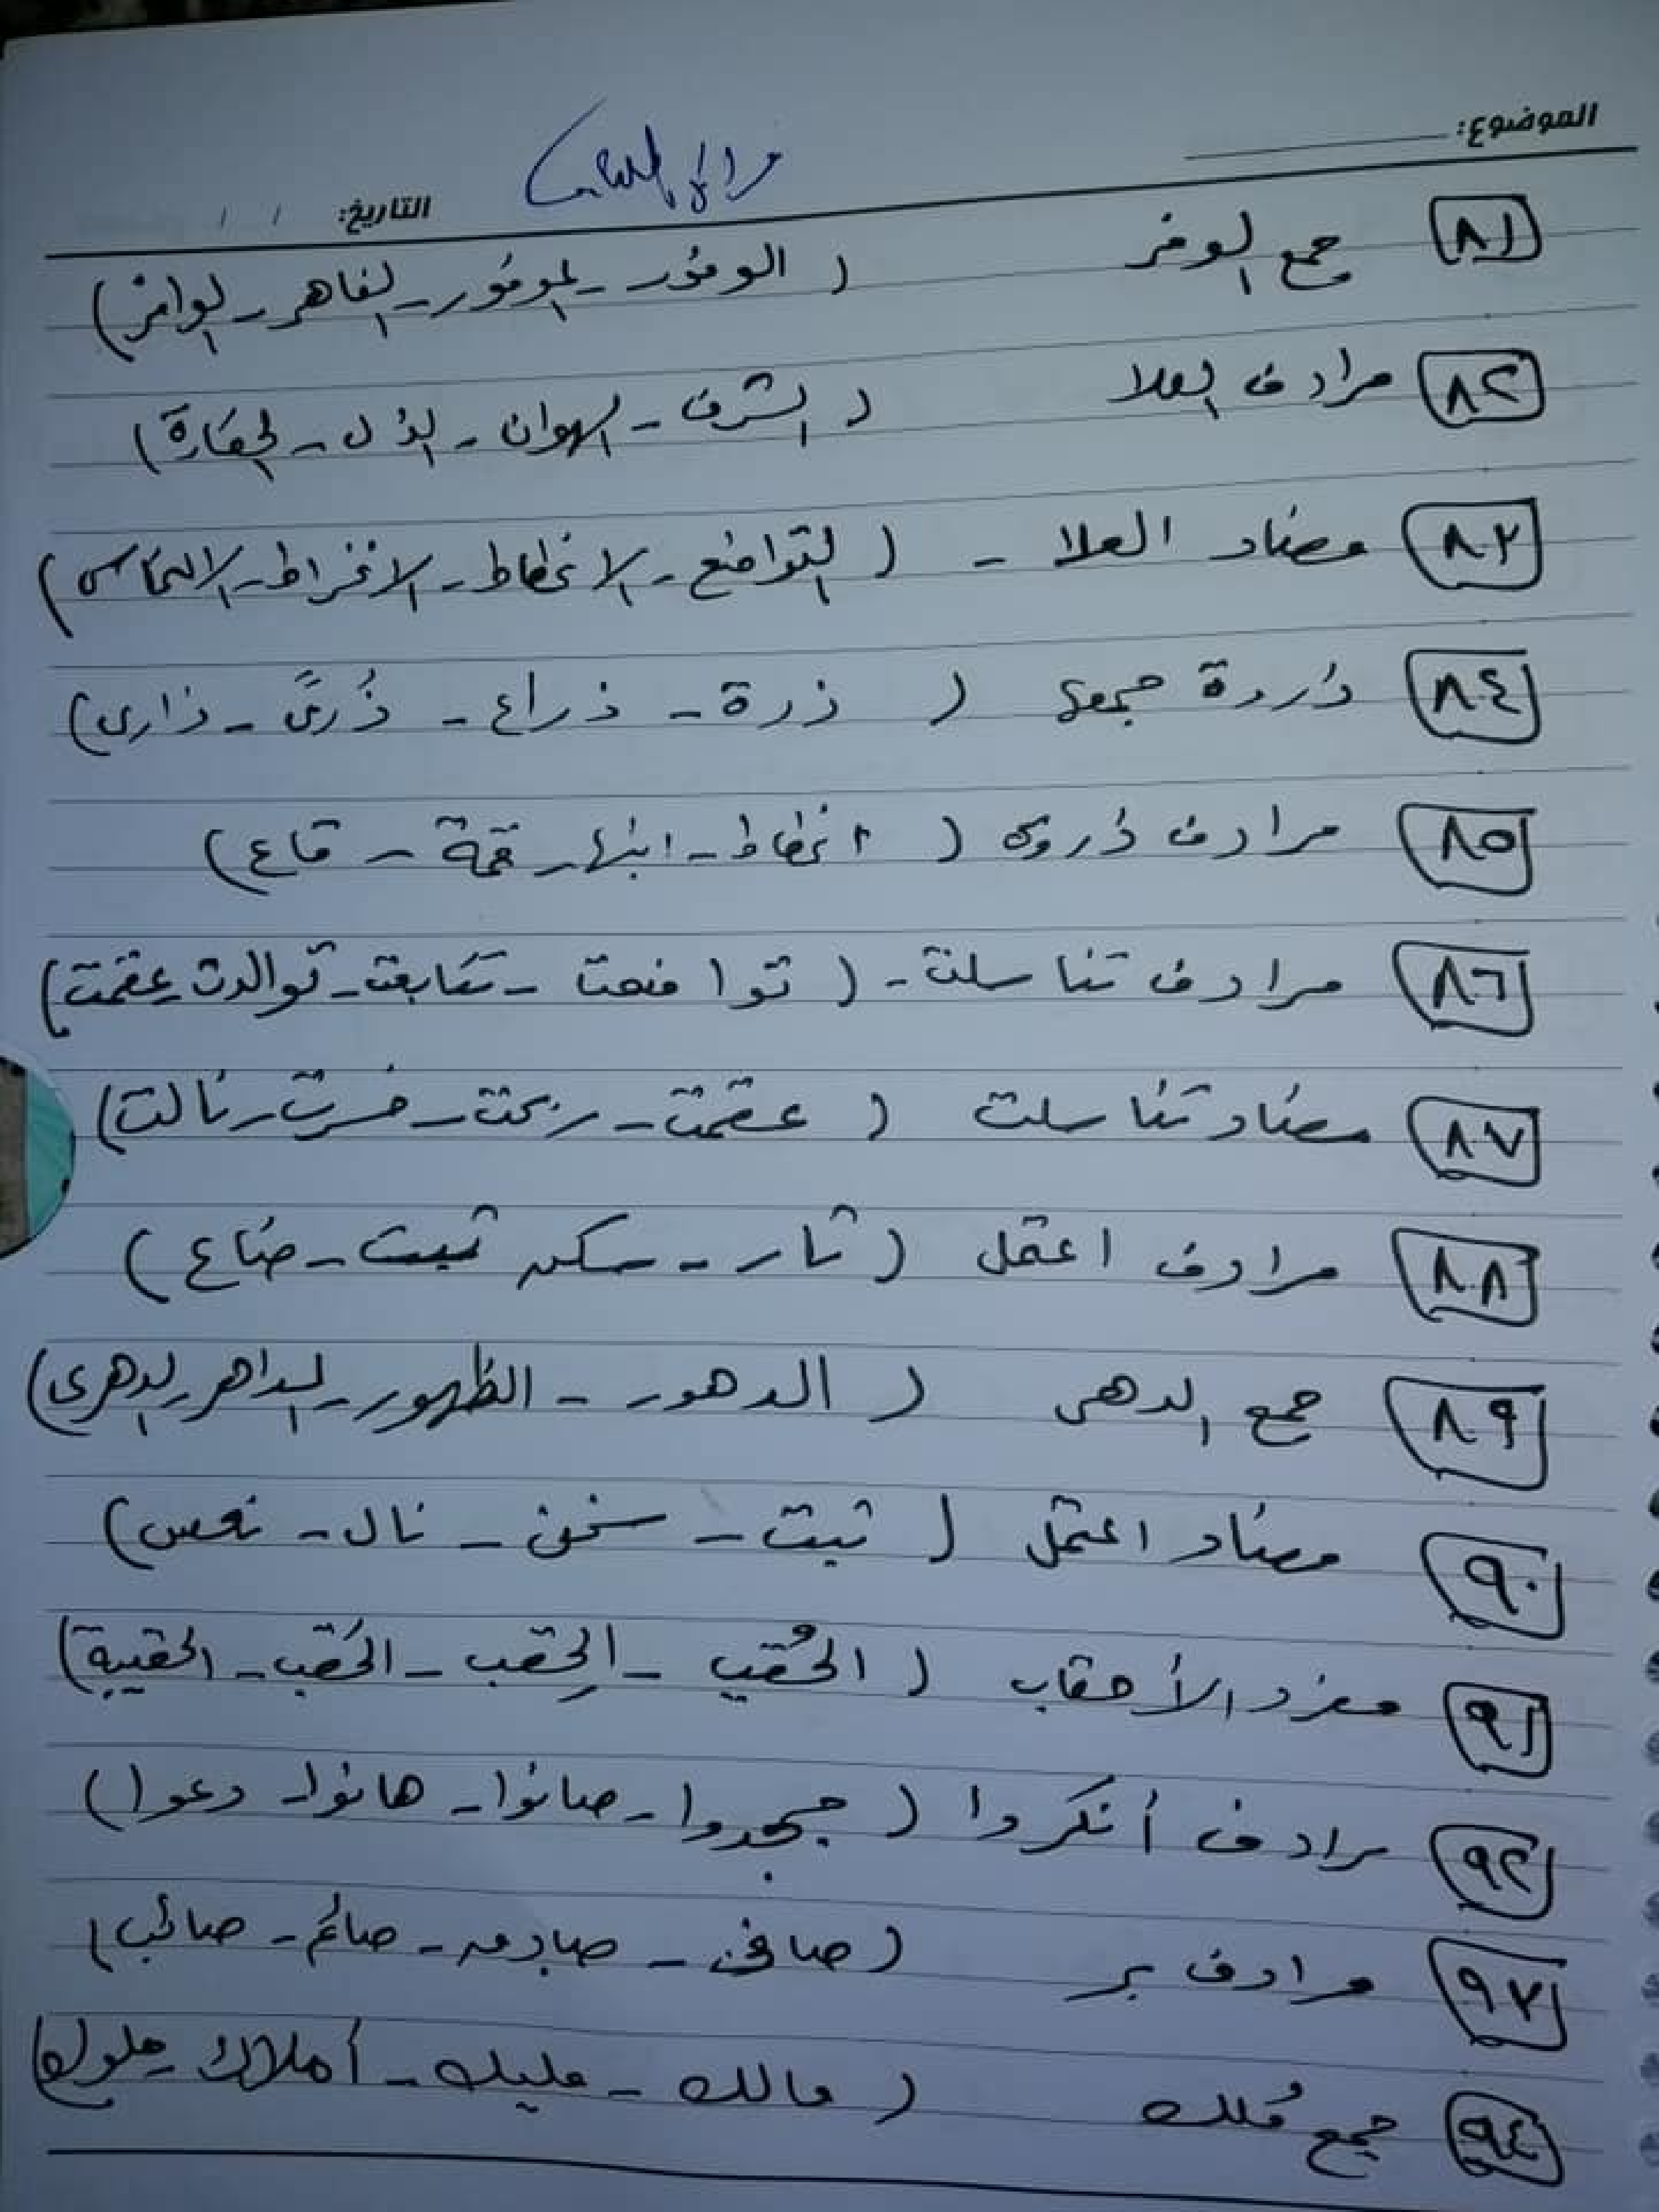 الموضوع:
التاريخ: / /
٨١ جمع الوفر ( الوفور - الموفور - الفاهر - الوافر)
٨٢ مرادف العلا ( الشرف - الهوان - الذل - الحقارة)
٨٣ مضاد العلا - ( التواضع - الانحطاط - الانخراط - الانعكاس)
٨٤ ذروة جمعها ( ذرة - ذراع - ذُرىً - ذارى)
٨٥ مرادف ذروة ( انحطاط - انهار - قمة - قاع)
٨٦ مرادف تناسلت - ( تواضعت - تتابعت - توالدت - عقمت)
٨٧ مضاد تناسلت ( عقمت - ربحت - خسرت - نالت)
٨٨ مرادف اعتمل ( ثار - سكن ثبت - ضاع )
٨٩ جمع الدهر ( الدهور - الظهور - الداهر - الدهرى)
٩٠ مضاد اعتمل ( ثبت - سخن - نال - نعس)
٩١ مفرد الأحقاب ( الحُقب - الحِقب - الحَقب - الحقيبة)
٩٢ مرادف أنكروا ( جحدوا - صانوا - هانوا - دعوا)
٩٣ مرادف بر (صافى - صادق - صائم - صائب)
٩٤ جمع مُلك ( مالك - مليك - أملاك - ملوك)